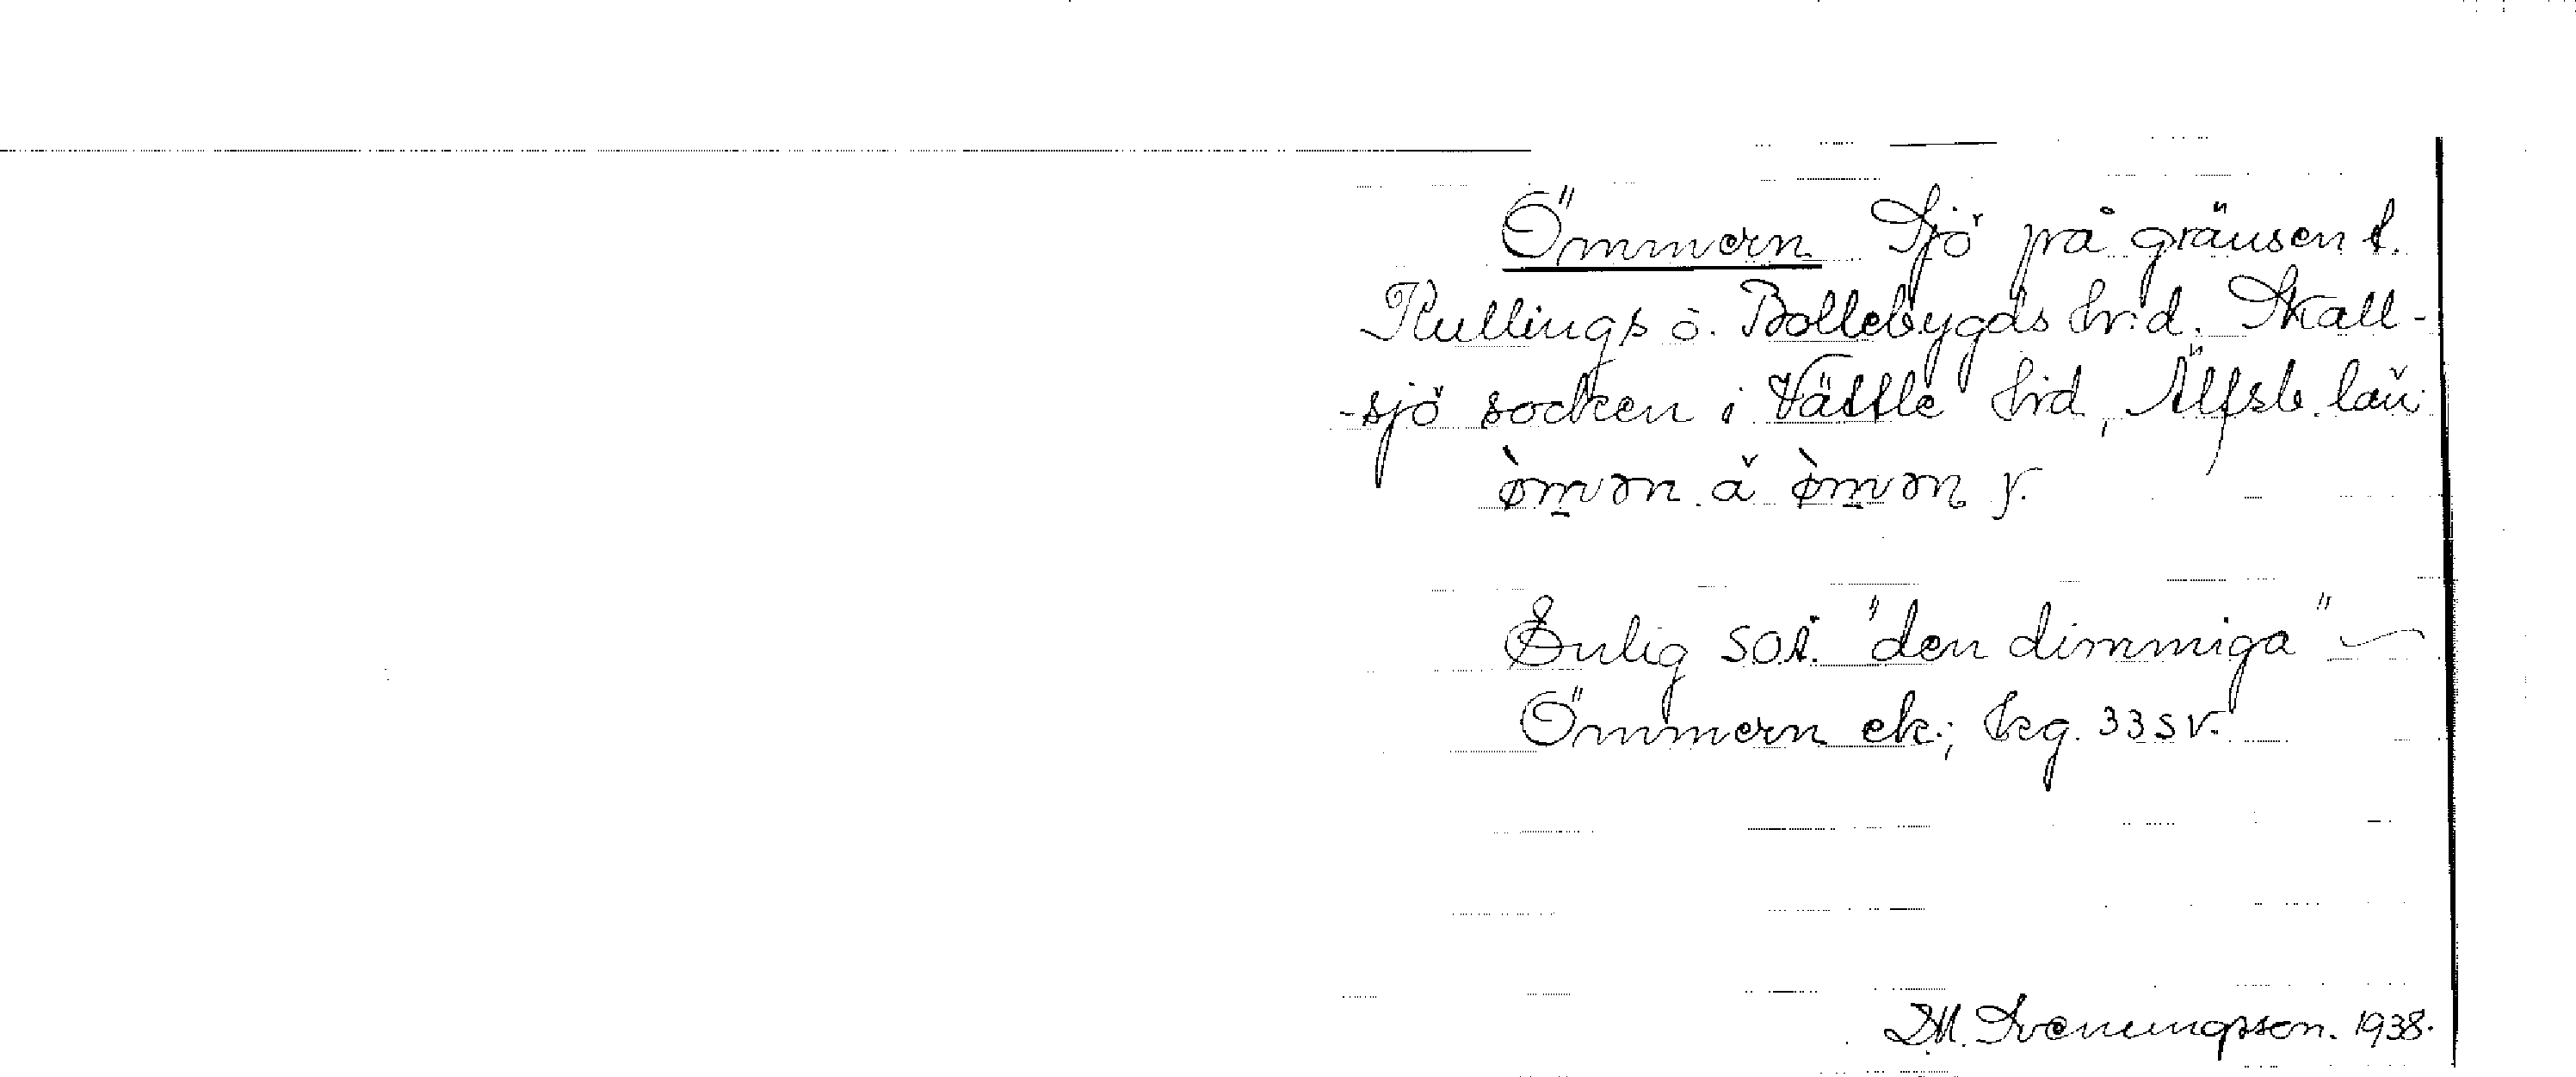 Ömmern Sjö på gränsen t.
Kullings o. Bollebygds hrd. Skall-
-sjö socken i Vättle hrd, Älfsb. län
ò̤mərn å ò̤mərn y.
Enlig SOÄ. "den dimmiga"
Ömmern ek.; kg. 33 SV.
D.M. Svenningsson. 1938.